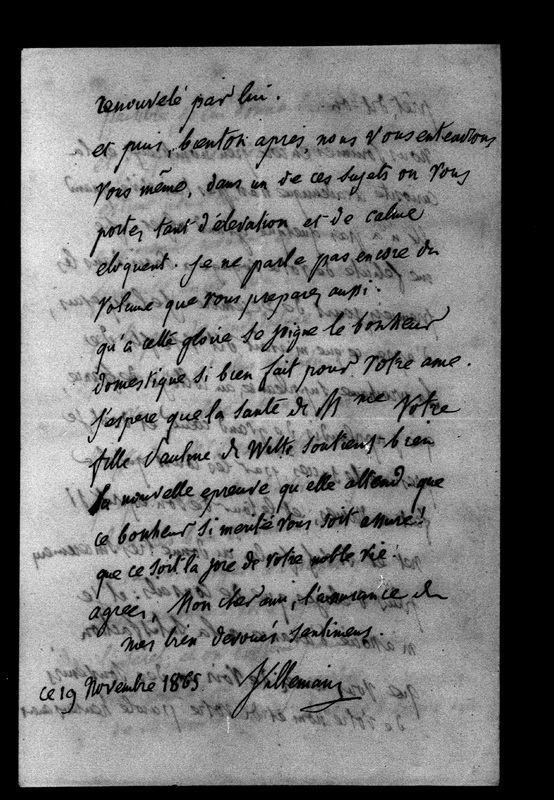 renouvelé par lui.
et puis, bientôt après, nous vous entendrons
vous même, dans un de ces sujets où vous
portez tant d'élévation et de calme
éloquent. je ne parle pas encore du
volume que vous preparez aussi.
qu'à cette gloire se joigne le bonheur
domestique si bien fait pour votre ame.
j'espere que la santé de Mme Votre
fille Pauline de Witte soutient bien
la nouvelle epreuve qu'elle attend. que
ce bonheur si merité vous soit assuré!
que ce soit la joie de votre noble vie!
agreez, Mon cher ami, l'assurance de
mes bien devoués sentimens.
ce 19 Novembre 1865 Villemain